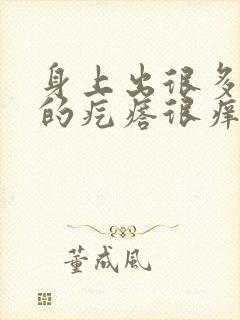 身上出很多
的疙瘩很痒
董成风